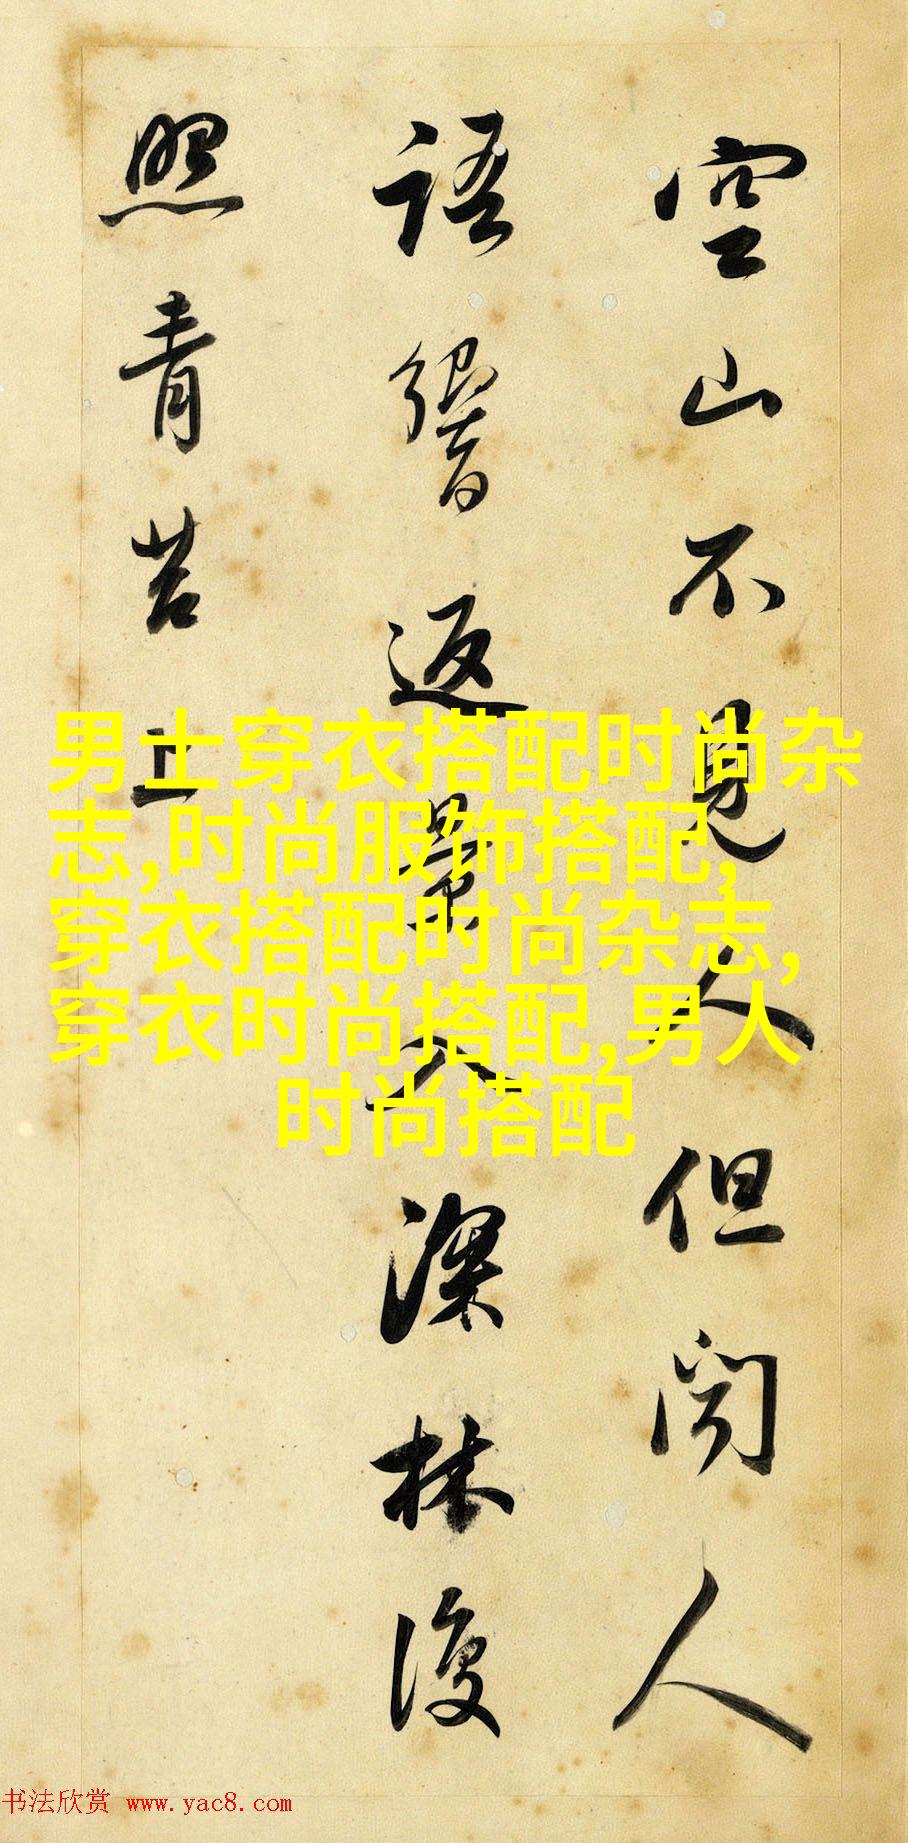 空山不見人但聞人
語響返景入深林復
照青苔上
男士穿衣搭配时尚杂
志,时尚服饰搭配,
穿衣搭配时尚杂志,
穿衣时尚搭配,男人
时尚搭配
书法欣赏 www.yac8.com